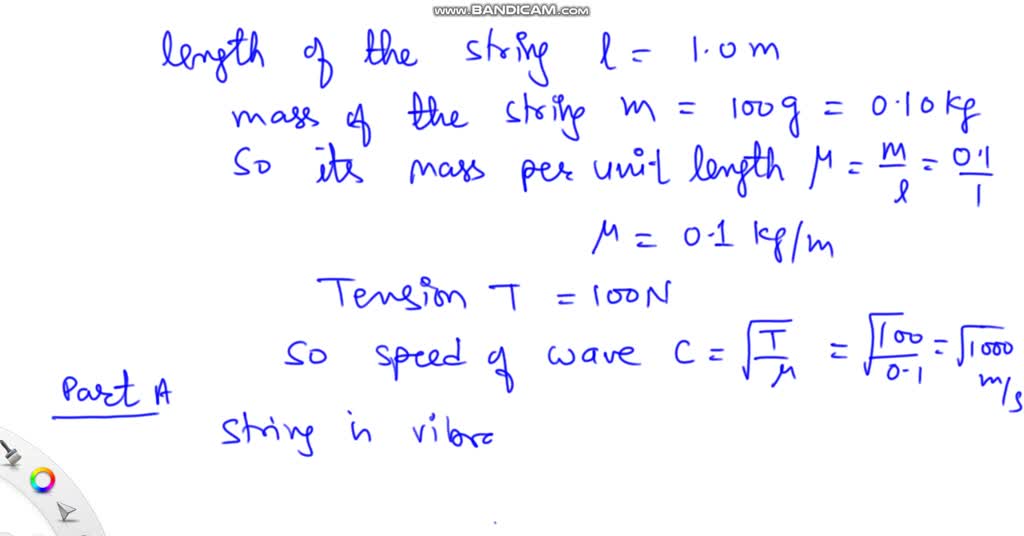 www.BANDICAM.com
length of the string l = 1.0 m
mass of the string m = 100g = 0.10 kg
So its mass per unit length μ = m/l = 0.1/1
μ = 0.1 kg/m
Tension T = 100N
So speed of wave C = √(T/μ) = √(100/0.1) = √1000 m/s
Part A
string in vibra